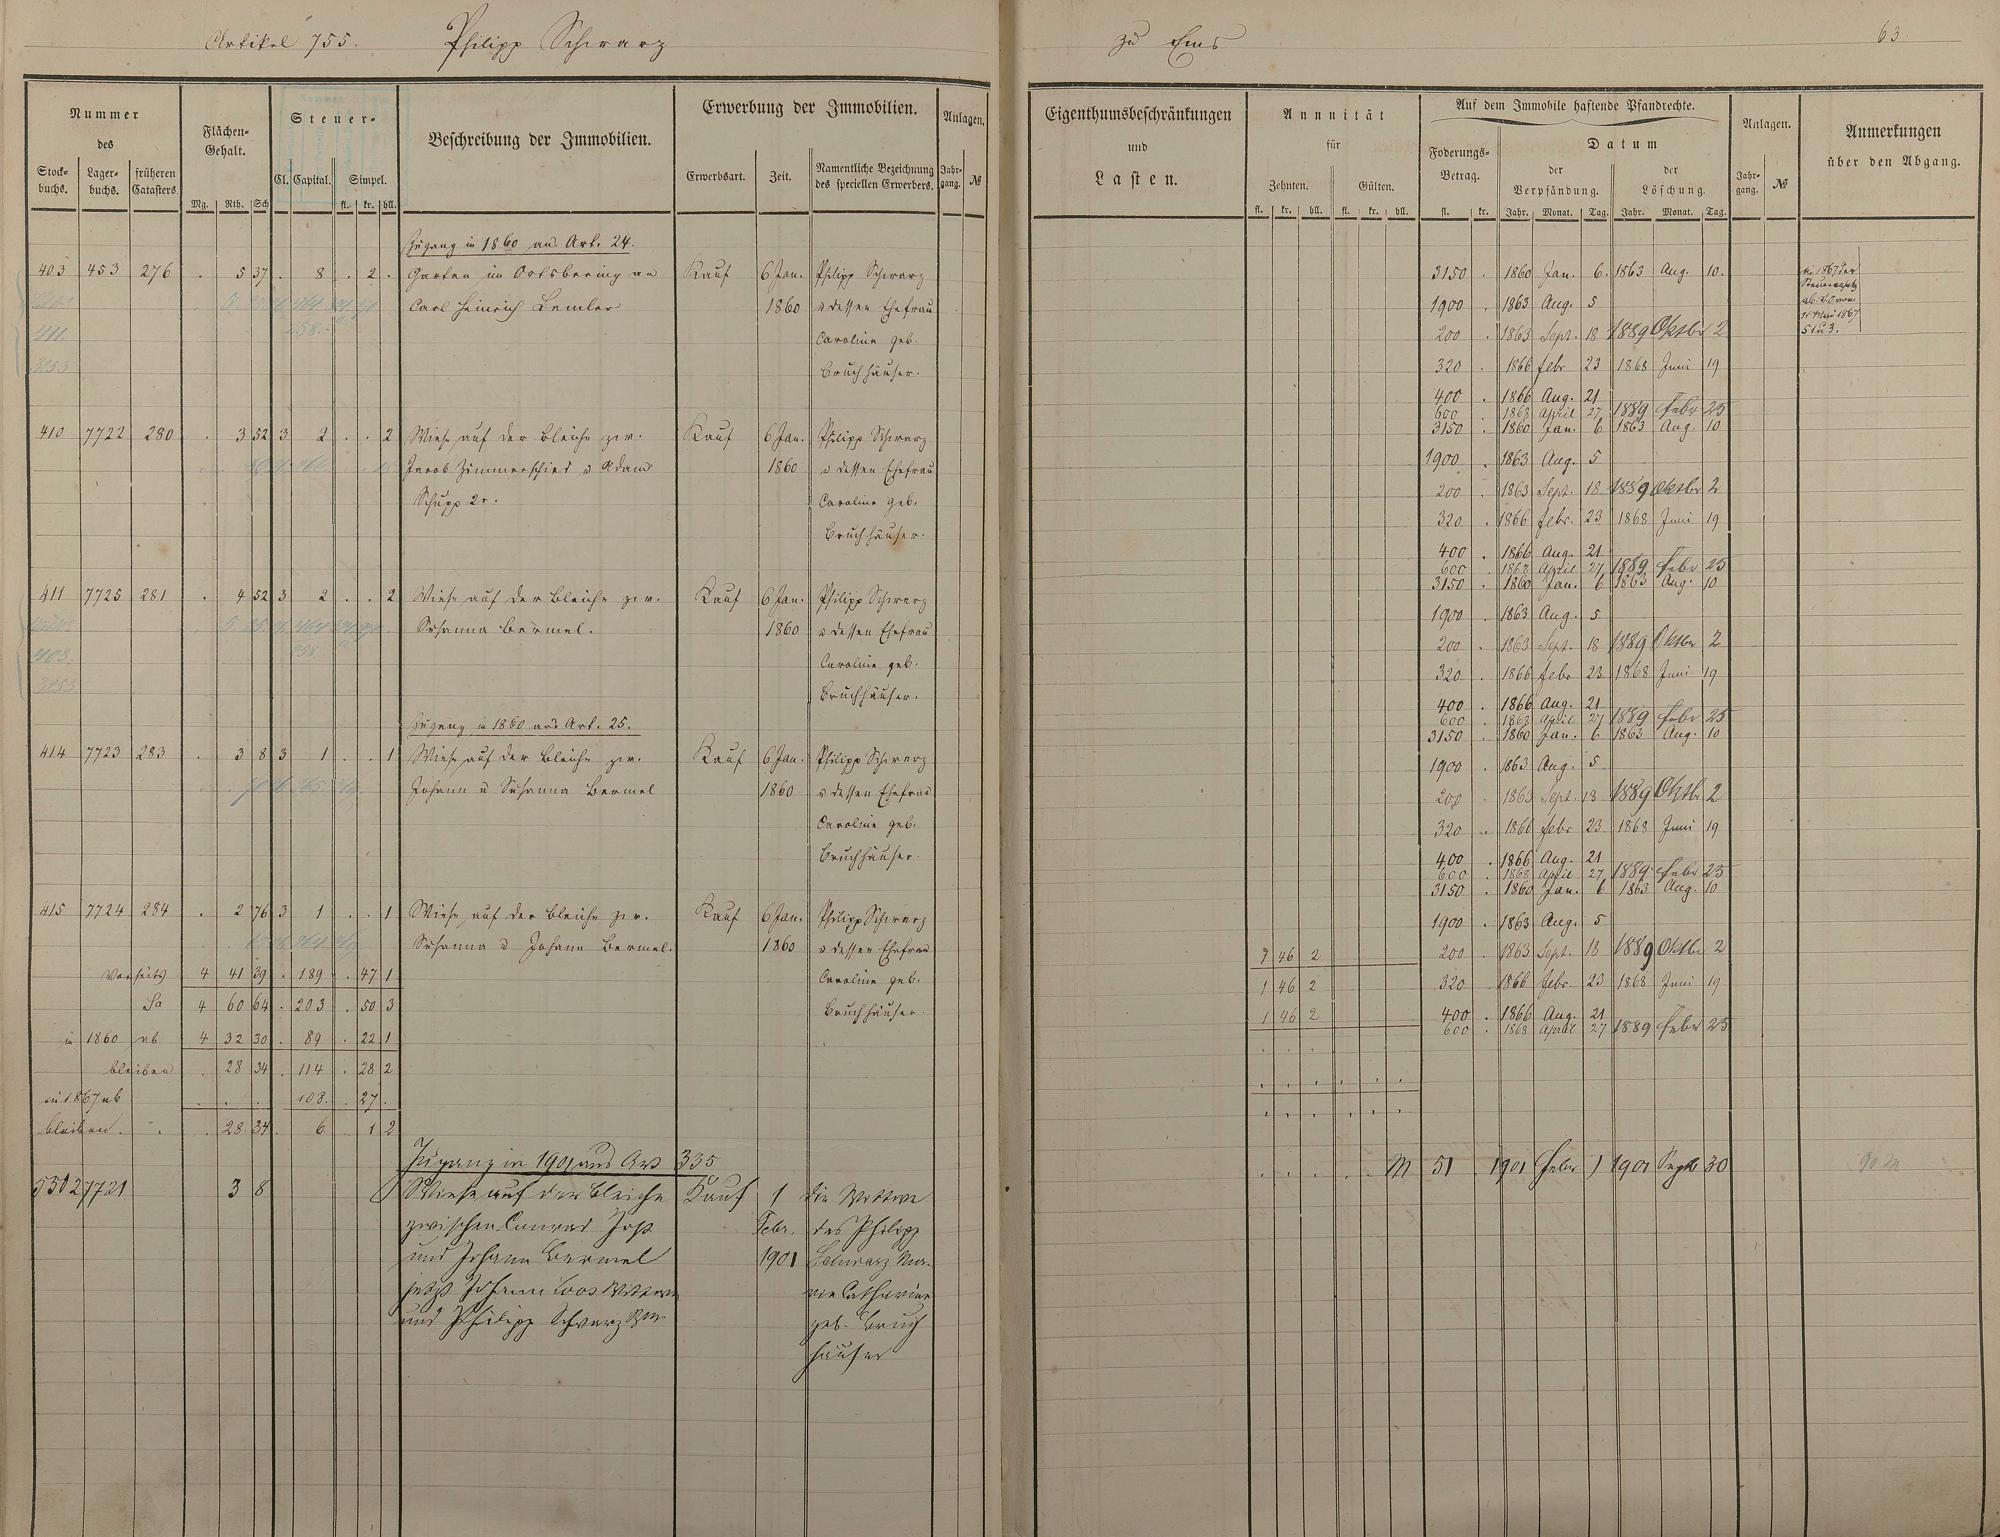 Artikel 755. Philipp Schwarz
zu Ems 63
Nummer
des
Stock-
buchs.
Lager-
buchs.
früheren
Catasters.
Flächen-
Gehalt.
Mg. Rth. Sch
Steuer-
Cl. Capital. Simpel.
fl. kr. hll.
Beschreibung der Immobilien.
Erwerbung der Immobilien.
Erwerbsart. Zeit.
Namentliche Bezeichnung
des speciellen Erwerbers.
Anlagen.
Jahr-
gang. №
Zugang in 1860 aus Art. 24.
403 453 276 . 5 37 . 8 . 2 . Garten im Ortsbering an Kauf 6 Jan. Philipp Schwarz
Carl Heinrich Lemler 1860 u dessen Ehefrau
Caroline geb.
Bruchhäuser.
411.
410 7722 280 . 3 52 3 2 . . 2 Wiese auf der Bleiche zw. Kauf 6 Jan. Philipp Schwarz
Jacob Zimmerschied u Adam 1860 u dessen Ehefrau
Schupp 2r. Caroline geb.
Bruchhäuser.
411 7725 281 . 4 52 3 2 . . 2 Wiese auf der Bleiche zw. Kauf 6 Jan. Philipp Schwarz
Susanna Bermel. 1860 u dessen Ehefrau
403. Caroline geb.
Bruchhäuser.
Zugang in 1860 aus Art. 25.
414 7723 283 . 3 8 3 1 . . 1 Wiese auf der Bleiche zw. Kauf 6 Jan. Philipp Schwarz
Johann u Susanna Bermel 1860 u dessen Ehefrau
Caroline geb.
Bruchhäuser.
415 7724 284 . 2 76 3 1 . . 1 Wiese auf der Bleiche zw. Kauf 6 Jan. Philipp Schwarz
Susanna u Johann Bermel. 1860 u dessen Ehefrau
Vorseits 4 41 39 . 189 . 47 1 Caroline geb.
Sa 4 60 64 . 203 . 50 3 Bruchhäuser.
in 1860 ab 4 32 30 . 89 . 22 1
bleiben . 28 34 . 114 . 28 2
in 1867 ab . . . 108. . 27 .
bleiben. . . 28. 34 . 6 . 1 2
Zugang in 1901 aus Art 335
5302 7721 3 8 Wiese auf der Bleiche Kauf 1 die Wittwe
zwischen Conrad Jost Febr. des Philipp
und Johann Bermel 1901 Schwarz Ma-
jetzt Johann Loos Wittwe rie Catharine
und Philipp Schwarz Ww. geb. Bruch
häuser
Eigenthumsbeschränkungen
und
Lasten.
Annuität
für
Zehnten. Gülten.
fl. kr. hll. fl. kr. hll.
Auf dem Immobile haftende Pfandrechte.
Foderungs-
Betrag.
fl. kr.
Datum
der
Verpfändung.
Jahr. Monat. Tag.
der
Löschung.
Jahr. Monat. Tag.
Anlagen.
Jahr-
gang. №
Anmerkungen
über den Abgang.
3150 . 1860 Jan. 6. 1863 Aug. 10.
1900 . 1863 Aug. 5
200 . 1863 Sept. 18 1889 Oktbr 2
320 . 1866 febr. 23 1868 Juni 19
400 . 1866 Aug. 21
600 . 1868 April 27 1889 Febr 25
3150 . 1860 Jan. 6 1863 Aug. 10
1900 . 1863 Aug. 5
200 . 1863 Sept. 18 1889 Oktbr 2
320 . 1866 febr. 23 1868 Juni 19
400 . 1866 Aug. 21
600 . 1868 April 27 1889 Febr 25
3150 . 1860 Jan. 6 1863 Aug. 10
1900 . 1863 Aug. 5
200 . 1863 Sept. 18 1889 Oktbr 2
320 . 1866 febr. 23 1868 Juni 19
400 . 1866 Aug. 21
600 . 1868 April 27 1889 Febr 25
3150 . 1860 Jan. 6 1863 Aug. 10
1900 . 1863 Aug. 5
200 . 1863 Sept. 18 1889 Oktbr 2
320 . 1866 febr 23 1868 Juni 19
400 . 1866 Aug. 21
600 . 1868 April 27 1889 Febr 25
3150 . 1860 Jan. 6 1863 Aug. 10
1900 . 1863 Aug. 5
46 2 200 . 1863 Sept. 18 1889 Oktbr 2
1 46 2 320 . 1866 febr. 23 1868 Juni 19
1 46 2 400 . 1866 Aug. 21
600 . 1868 April 27 1889 Febr 25
M 51 . 1901 Febr 1 1901 Sept 30